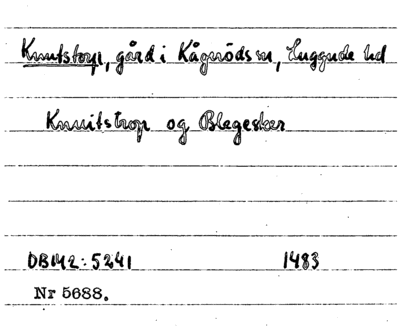 Knutstorp, gård i Kågeröds sn, Luggude hd
Knuitstrop og Blegesker
DBM2:5241 1483
Nr 5688.